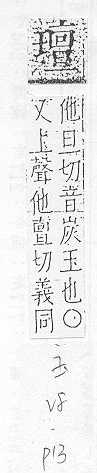 璮
他旦切音炭玉也〇
又上聲他亶切義同
玉
v8
.
p13